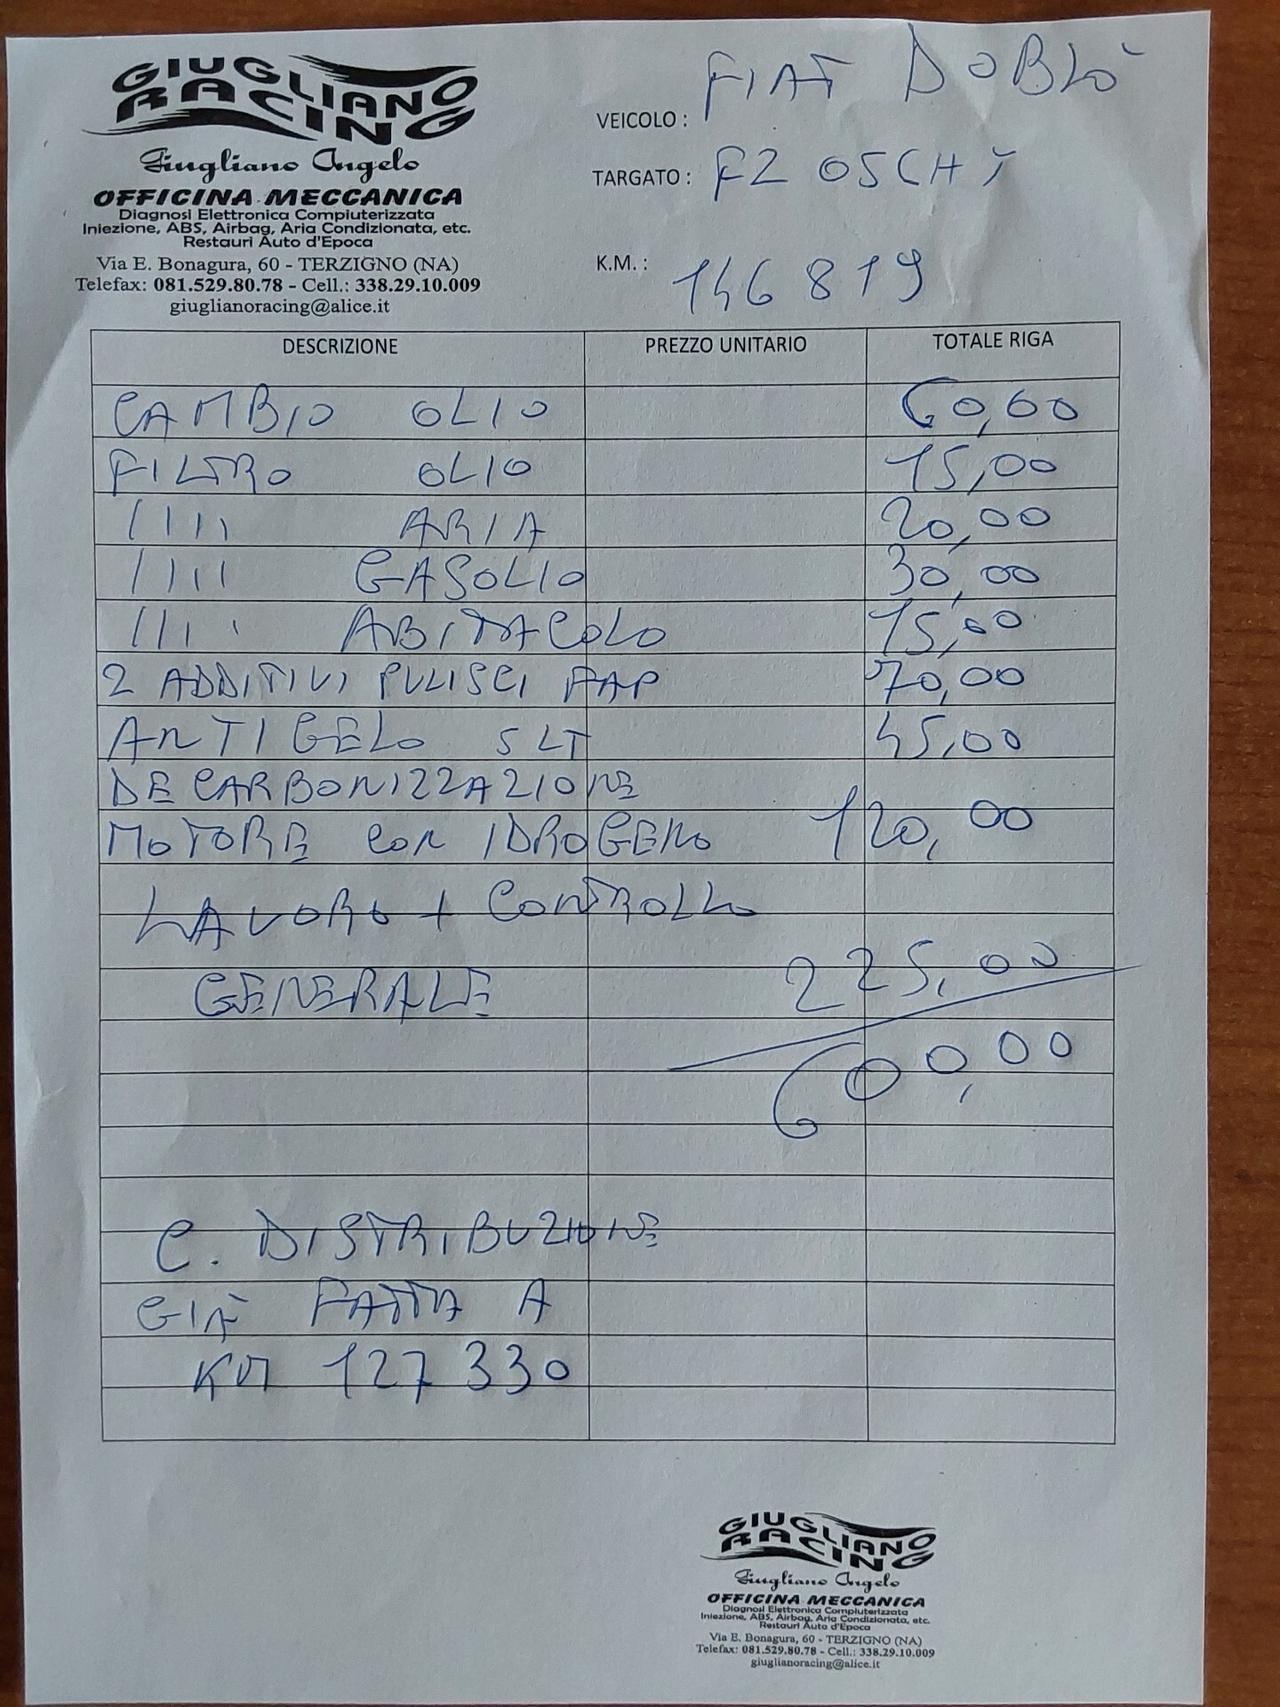 GIUGLIANO
RACING
Giugliano Angelo
OFFICINA MECCANICA
Diagnosi Elettronica Compiuterizzata
Iniezione, ABS, Airbag, Aria Condizionata, etc.
Restauri Auto d'Epoca
Via E. Bonagura, 60 - TERZIGNO (NA)
Telefax: 081.529.80.78 - Cell.: 338.29.10.009
giuglianoracing@alice.it
VEICOLO : FIAT DOBLÒ
TARGATO : FZ 05CHT
K.M. : 146819
DESCRIZIONE PREZZO UNITARIO TOTALE RIGA
CAMBIO OLIO 60,00
FILTRO OLIO 15,00
//// ARIA 20,00
//// GASOLIO 30,00
//// ABITACOLO 15,00
2 ADDITIVI PULISCI FAP 70,00
ANTIGELO 5 LT 45,00
DECARBONIZZAZIONE
MOTORE CON IDROGENO 120,00
LAVORO + CONTROLLO
GENERALE 225,00
600,00
C. DISTRIBUZIONE
GIÀ FATTA A
KM 127330
GIUGLIANO
RACING
Giugliano Angelo
OFFICINA MECCANICA
Diagnosi Elettronica Compiuterizzata
Iniezione, ABS, Airbag, Aria Condizionata, etc.
Restauri Auto d'Epoca
Via E. Bonagura, 60 - TERZIGNO (NA)
Telefax: 081.529.80.78 - Cell.: 338.29.10.009
giuglianoracing@alice.it